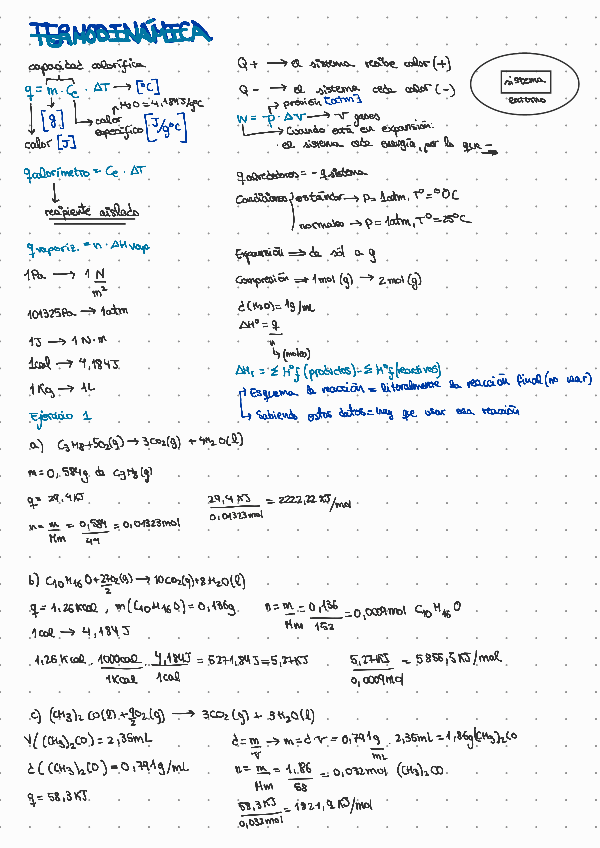 TERMODINÁMICA
capacidad calorífica
q = m · Ce · ΔT → [°C]
H2O = 4,184 J/g°C
[g]
calor específico [J/g°C]
calor [J]
q calorímetro = Ce · ΔT
recipiente aislado
q vaporiz. = n · ΔH vap
1Pa → 1 N/m²
101325Pa → 1atm
1J → 1N·m
1cal → 4,184J
1Kg → 1L
Q + → el sistema recibe calor (+)
Q - → el sistema cede calor (-)
presión [atm]
W = -p · ΔV → V gases
Cuando está en expansión.
el sistema cede energía, por lo que -
sistema
entorno
q alrededores = - q sistema
Condiciones estándar → P = 1atm, T° = 0°C
normales → P = 1atm, T° = 25°C
Expansión → de sól a g
Compresión → 1mol (g) → 2mol (g)
d(H2O) = 1g/mL
ΔH° = q/n
(moles)
ΔHr = Σ H°f (productos) - Σ H°f (reactivos)
Esquema la reacción = literalmente la reacción final (no usar)
Sabiendo estos datos = hay que usar esa reacción
Ejercicio 1
a) C3H8 + 5O2(g) → 3CO2(g) + 4H2O(l)
m = 0,584g de C3H8(g)
q = 29,4 KJ
29,4 KJ / 0,01323mol = 2222,22 KJ/mol
n = m/Mm = 0,584/44 = 0,01323mol
b) C10H16O + 27/2 O2(g) → 10CO2(g) + 8H2O(l)
q = 1,26Kcal, m(C10H16O) = 0,136g
n = m/Mm = 0,136/152 = 0,0009mol C10H16O
1cal → 4,184J
1,26 Kcal · 1000cal/1Kcal · 4,184J/1cal = 5271,84J = 5,27KJ
5,27KJ / 0,0009mol = 5855,5 KJ/mol
c) (CH3)2CO(l) + 9/2 O2(g) → 3CO2(g) + 3H2O(l)
V((CH3)2CO) = 2,35mL
d = m/V → m = d·V = 0,791g/mL · 2,35mL = 1,86g (CH3)2CO
d((CH3)2CO) = 0,791g/mL
n = m/Mm = 1,86/58 = 0,032mol (CH3)2CO
q = 58,3KJ
58,3KJ / 0,032mol = 1821,9 KJ/mol